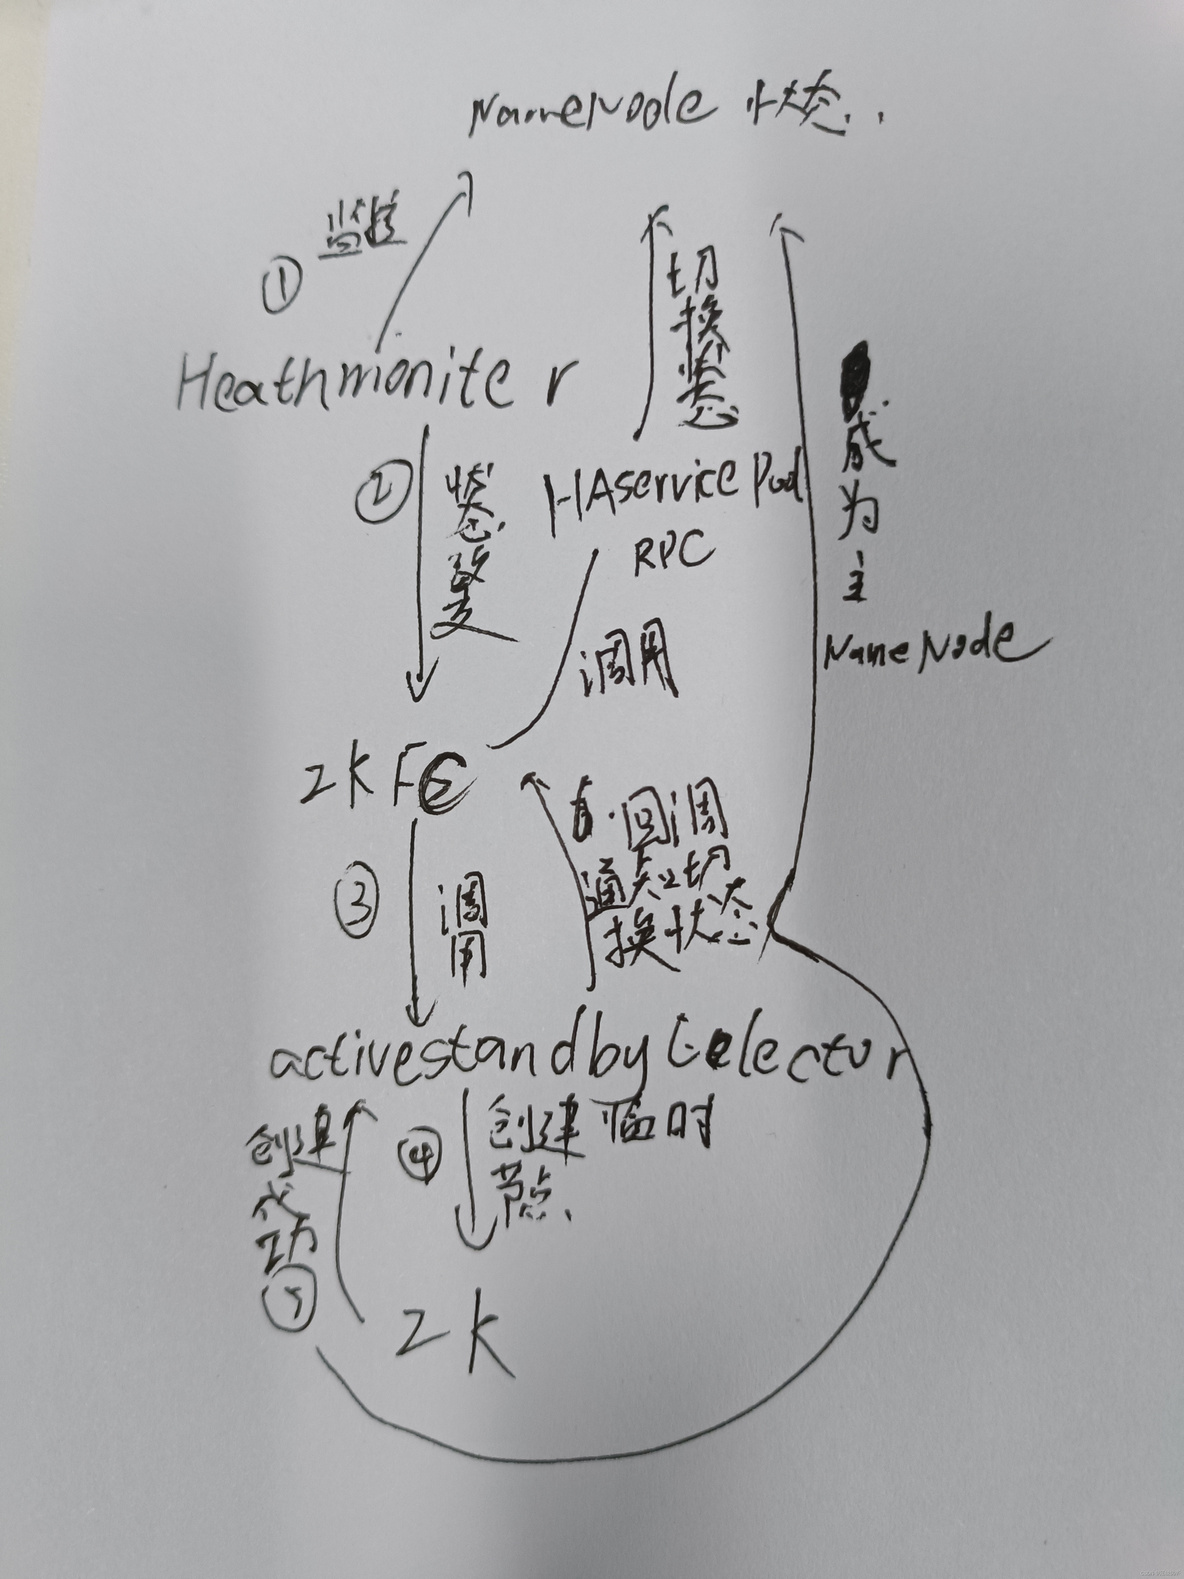 NameNode 状态.
监控
①
Heathmoniter
切换状态
成为主
NameNode
②
状态改变
HAservicePod
RPC
调用
ZKFC
③
调用
回调
通知切
换状态
activestandbyEelector
创建成功
⑤
④
创建临时
节点
ZK